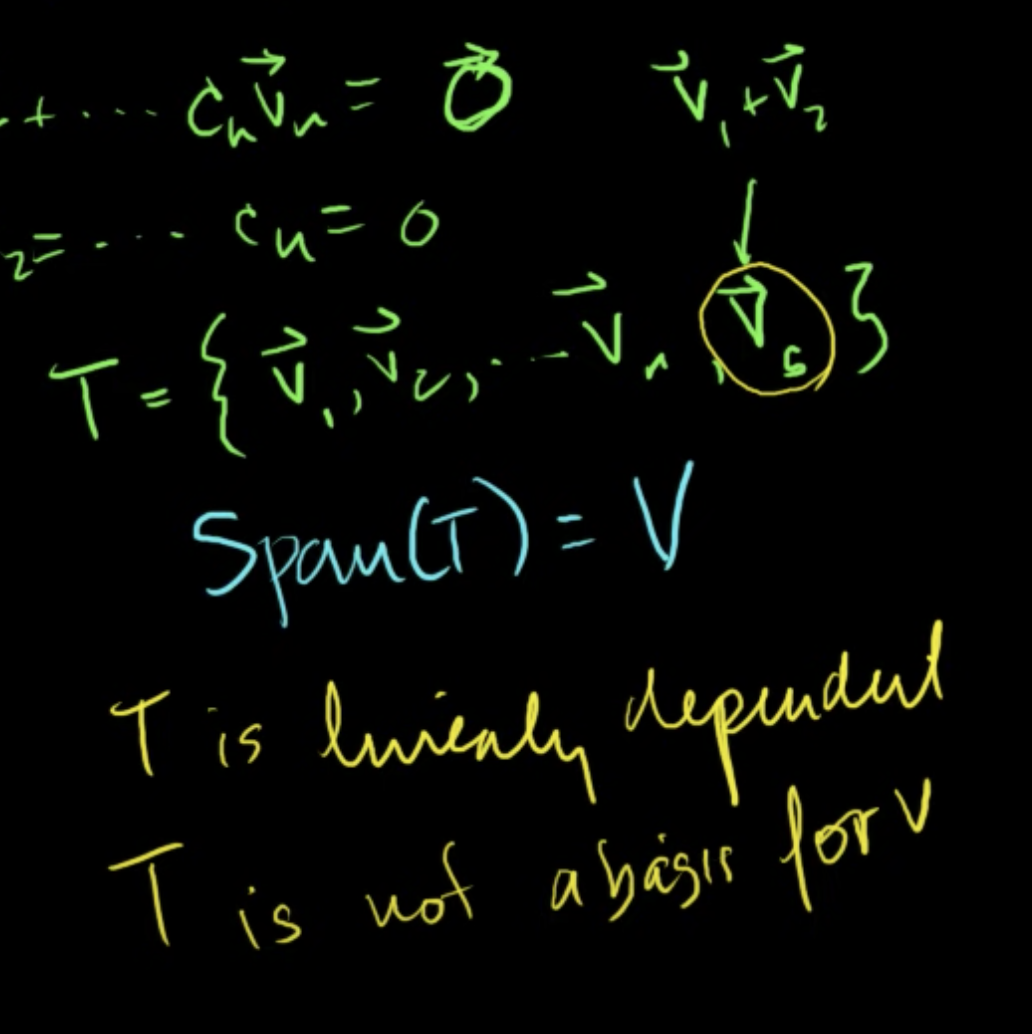 + ··· cₙv⃗ₙ = 0⃗ v⃗₁ + v⃗₂
₂ = ··· cₙ = 0
T = { v⃗₁, v⃗₂, ··· v⃗ₙ, v⃗ₛ }
Span(T) = V
T is linearly dependent
T is not a basis for V